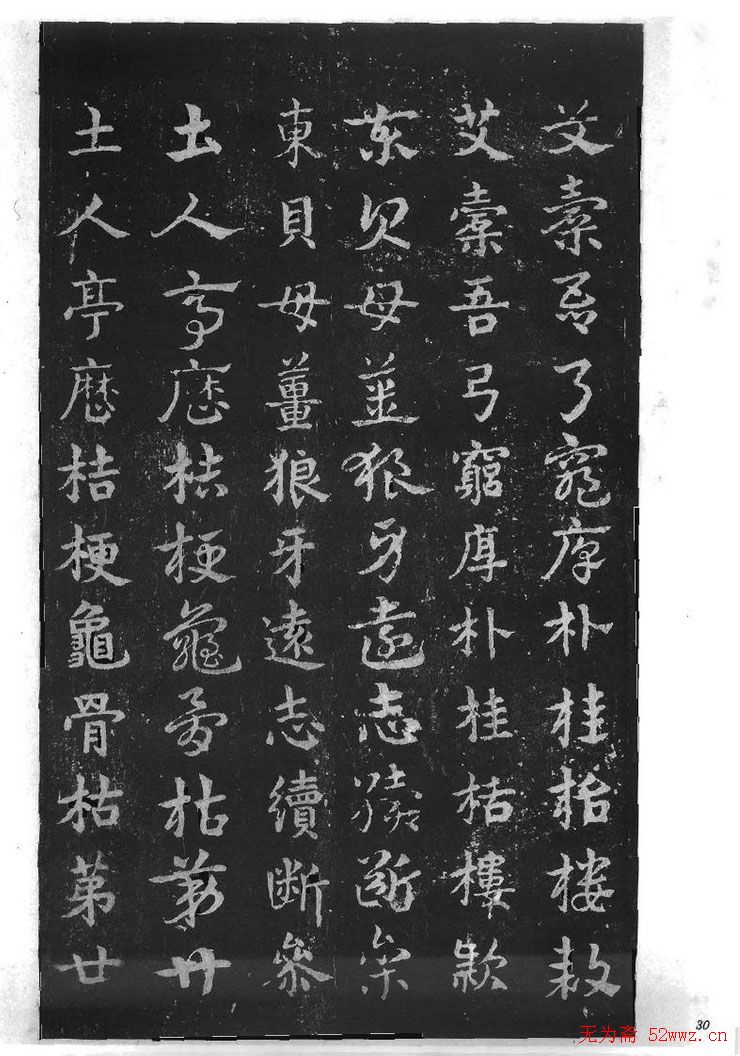 艾橐吾弓窮厚朴桂栝樓款
艾橐吾弓窮厚朴桂栝樓款
東貝母薑狼牙遠志續斷參
東貝母薑狼牙遠志續斷參
土人亭曆桔梗龜骨枯第廿
土人亭曆桔梗龜骨枯第廿
30
无为斋 52wwz.cn